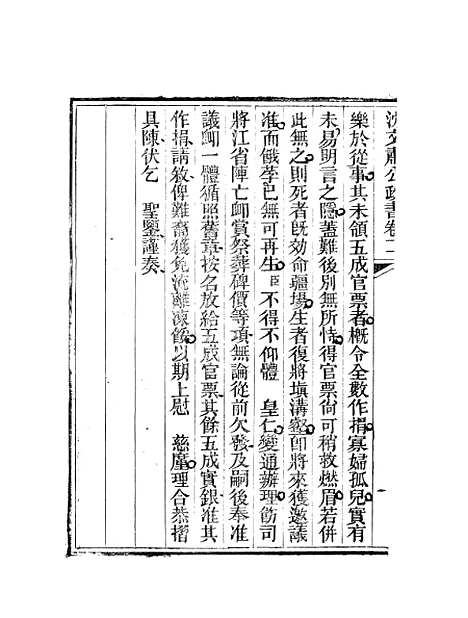 沈文肅公政書卷二
樂於從事其未領五成官票者概令全數作捐寡婦孤兒實有
未易明言之隱蓋難後別無所恃得官票尙可稍救燃眉若併
此無之則死者旣効命疆場生者復將塡溝壑卽將來獲邀議
准而俄莩已無可再生臣不得不仰體　皇仁變通辦理飭司
將江省陣亡卹賞祭葬碑價等項無論從前欠發及嗣後奉准
議卹一體循照舊章按名放給五成官票其餘五成實銀准其
作捐請敘俾難裔獲免流離凍餒以期上慰　慈廑理合恭摺
具陳伏乞　聖鑒謹奏